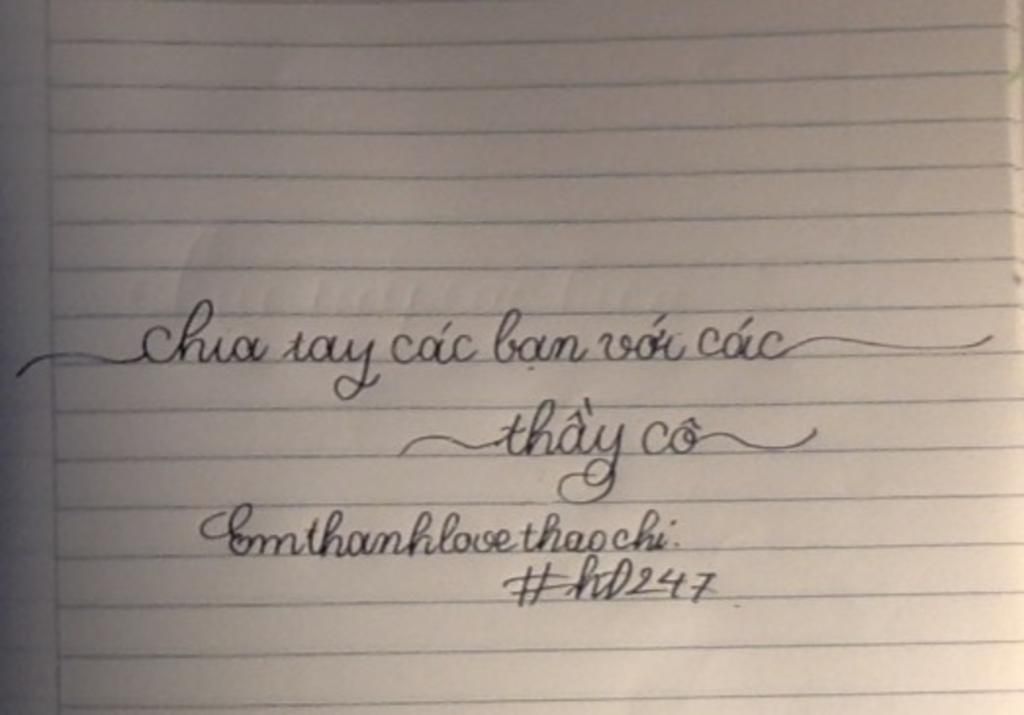 chia tay các bạn với các
thầy cô
Emthanhlovethaochi.
#hD247